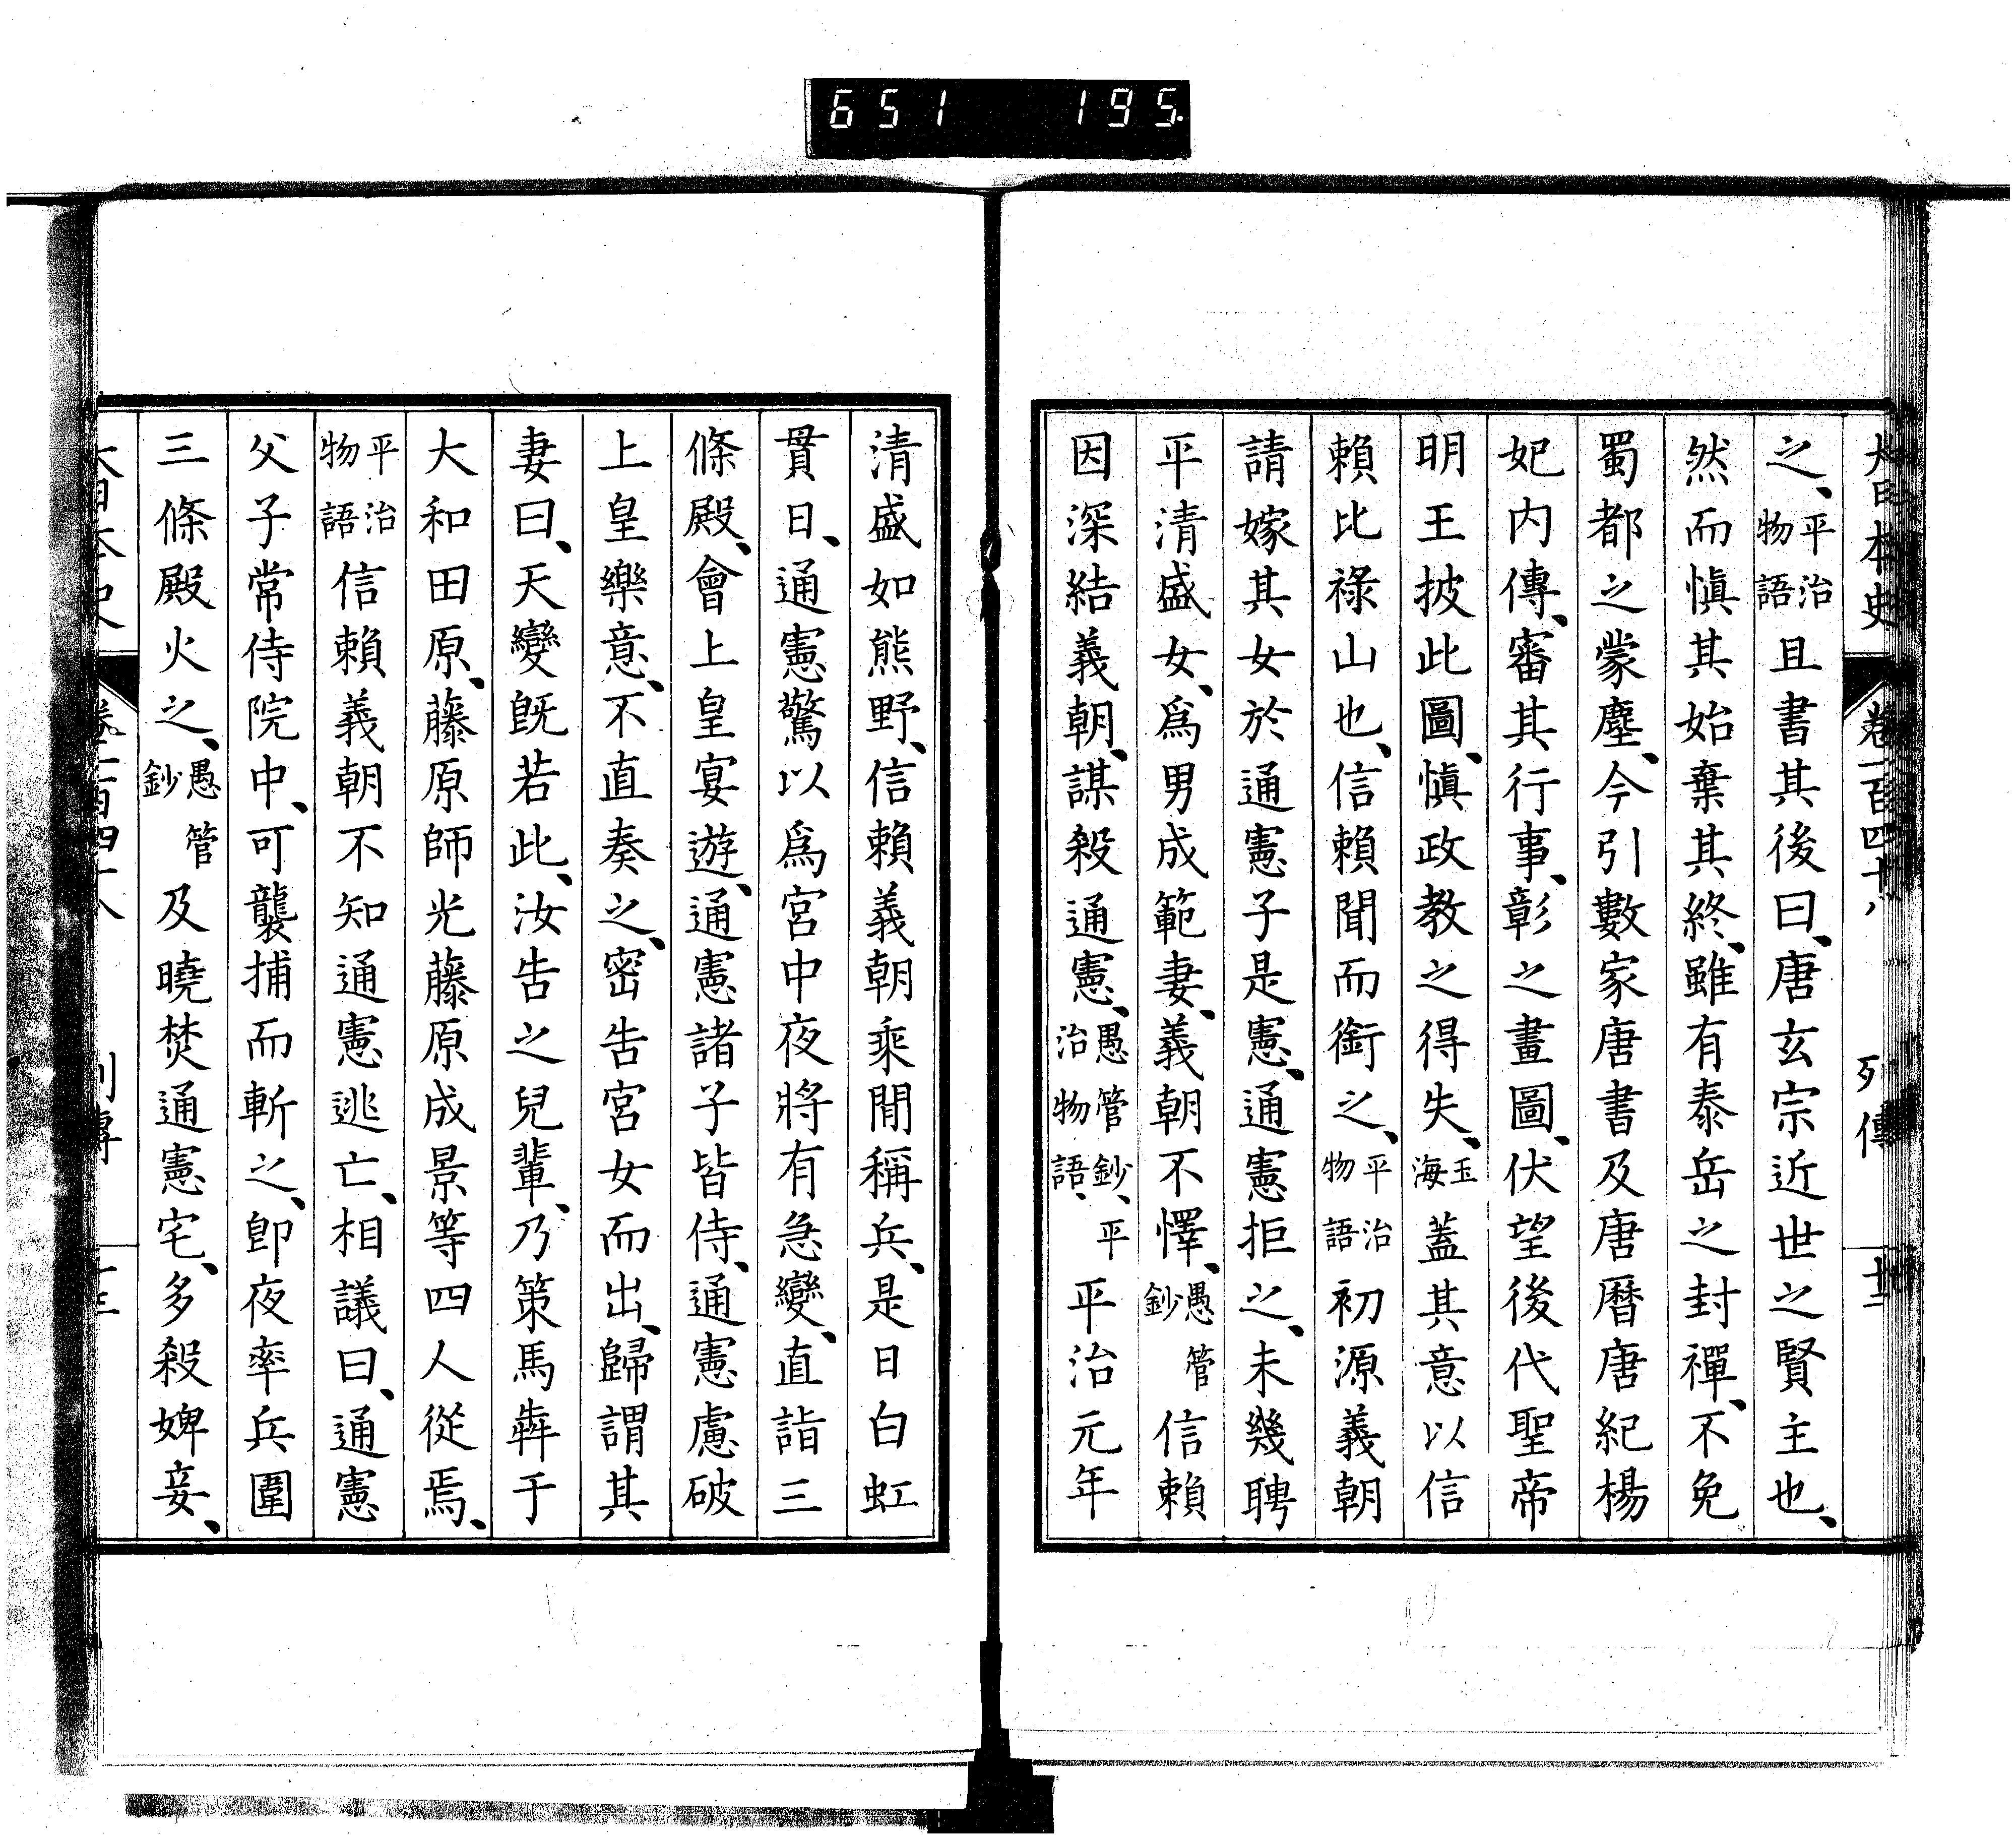 651 195.
大日本史 卷一百四十八 列傳 十二
之、平治物語且書其後曰、唐玄宗近世之賢主也、
然而愼其始棄其終、雖有泰岳之封禪、不免
蜀都之蒙塵、今引數家唐書及唐曆唐紀楊
妃内傳、審其行事、彰之畫圖、伏望後代聖帝
明王披此圖、愼政教之得失、玉海蓋其意以信
賴比祿山也、信賴聞而銜之、平治物語初源義朝
請嫁其女於通憲子是憲、通憲拒之、未幾聘
平清盛女、爲男成範妻、義朝不懌、愚管鈔信賴
因深結義朝、謀殺通憲、愚管鈔、平治物語、平治元年
清盛如熊野、信賴義朝乘閒稱兵、是日白虹
貫日、通憲驚以爲宮中夜將有急變、直詣三
條殿、會上皇宴遊、通憲諸子皆侍、通憲慮破
上皇樂意、不直奏之、密告宮女而出、歸謂其
妻曰、天變旣若此、汝告之兒輩、乃策馬犇于
大和田原、藤原師光藤原成景等四人從焉、
平治物語信賴義朝不知通憲逃亡、相議曰、通憲
父子常侍院中、可襲捕而斬之、卽夜率兵圍
三條殿火之、愚管鈔及曉焚通憲宅、多殺婢妾、
大日本史 卷一百四十八 列傳 十三